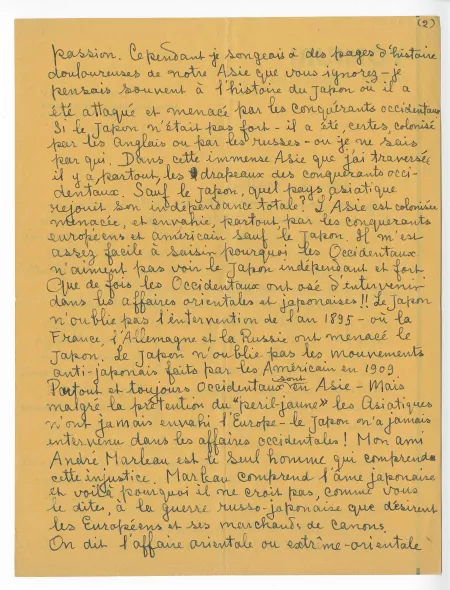 (2)
passion. Cependant je songeais à des pages d'histoire
douloureuses de notre Asie que vous ignorez - je
pensais souvent à l'histoire du Japon où il a
été attaqué et menacé par les conquérants occidentaux
Si le Japon n'était pas fort - il a été, certes, colonisé
par les Anglais ou par les russes - ou je ne sais
par qui. Dans cette immense Asie que j'ai traversée
il y a partout, les drapeaux des conquerants occi-
dentaux. Sauf le Japon, quel pays asiatique
rejouit son indépendance totale? L'Asie est coloniée
menacée, et envahie, partout par les conquerants
européens et américain sauf le Japon. Il m'est
assez facile à saisir pourquoi les Occidentaux
n'aiment pas voir le Japon indépendant et fort
Que de fois les Occidentaux ont osé d'intervenir
dans les affaires orientales et japonaises!! Le Japon
n'oublie pas l'intervention de l'an 1895 - où la
France, l'Allemagne et la Russie ont menacé le
Japon. Le Japon n'oublie pas les mouvements
anti-japonais faits par les Américain en 1909
Partout et toujours Occidentaux sont en Asie - Mais
malgré la prétention du "peril-jaune" les Asiatiques
n'ont jamais envahi l'Europe - le Japon n'a jamais
intervenu dans les affaires occidentales! Mon ami
André Marleau est le seul homme qui comprend
cette injustice. Marleau comprend l'âme japonaise
et voilà pourquoi il ne croit pas, comme vous
le dites, à la guerre russo-japonaise que désirent
les Européens et ses marchands de canons.
On dit l'affaire orientale ou extrême-orientale